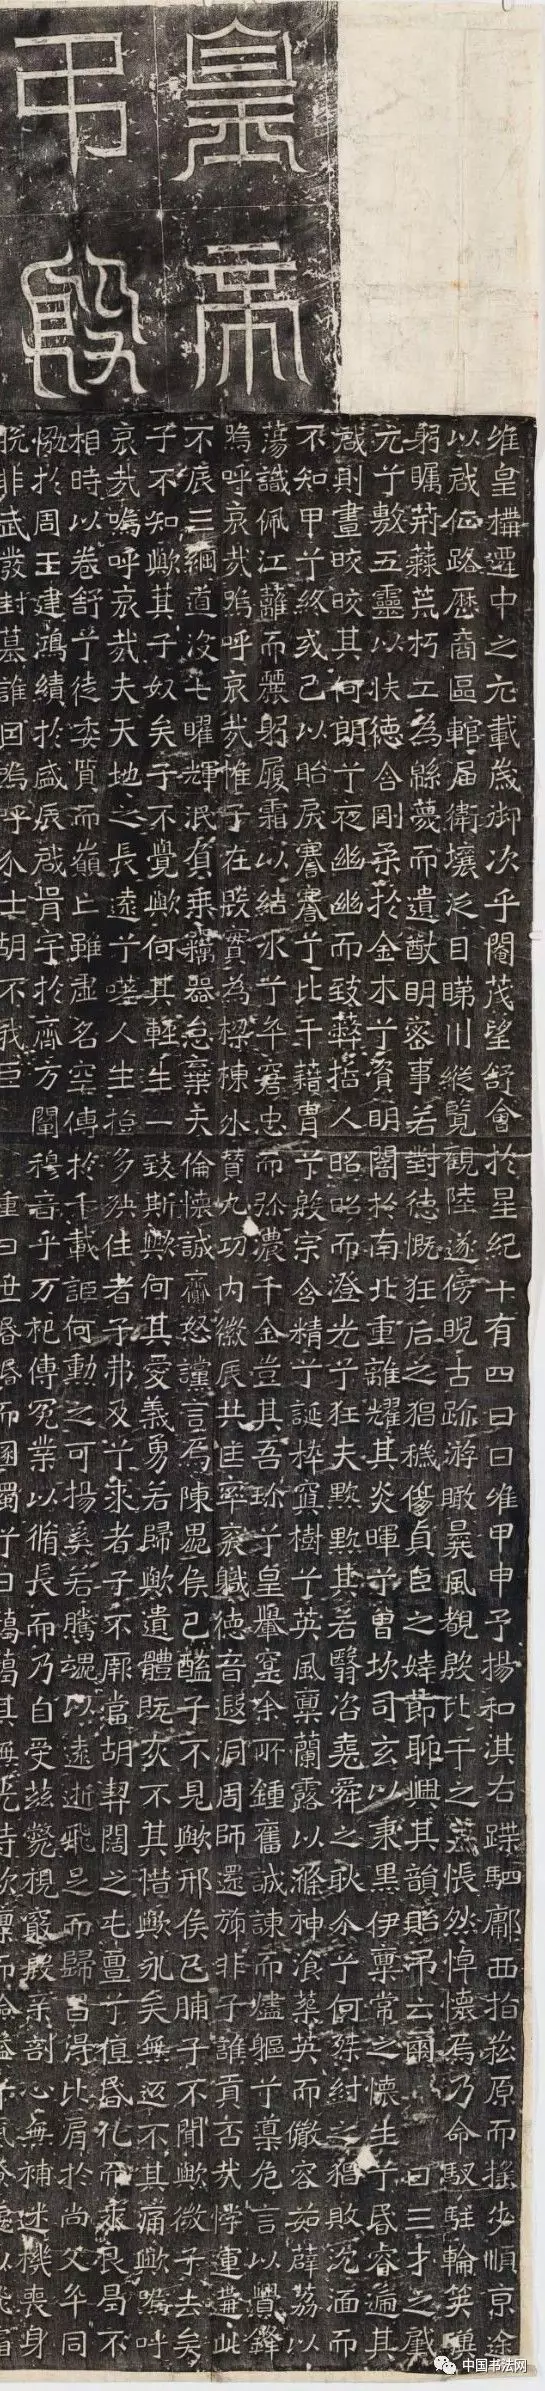 皇帝
弔殷
維皇構遷中之元載歲御次乎閹茂望舒會於星紀十有四日日唯甲申予揚和淇右蹀駟鄘西指崧原而搖步順京途
以啟征路歷商區轄屆衛壤泛目睇川縱覽觀陸遂傍睨古跡游瞰曩風覩殷比干之墓悵然悼懷焉乃命馭駐輪策驥
躬矚荊蕀荒朽工為緜蔑而遺猷明密事若對德慨狂后之猖穢傷貞臣之婞節聊興其韻貽弔云爾 曰三才之
元兮敷五靈以扶德含剛柔於金木兮資明闇於南北重離耀其炎暉兮曾坎司玄以秉黑伊稟常之懷生兮昏睿遞其
啟則晝皎皎其何朗兮夜幽幽而致蔽哲人昭昭而澄光兮狂夫默默其若翳咨堯舜之耿介兮何桀紂之猖敗沉湎而
不知甲兮終或己以貽戾謇謇兮比干藉胄兮殷宗含精兮誕梓冥樹兮英風稟蘭露以滌神飡蘂英而儆容茹薜荔以
蕩識佩江蘺而麗躬履霜以結冰兮卒窘忠而彌濃千金豈其吾珍兮皇舉寔余所鍾奮誠諫而燼軀兮導危言以釁鋒
嗚呼哀哉嗚呼哀哉惟子在殷實為樑棟外贊九功內徽辰共匡率衰職德音遐洞周師還旆非子誰貢否哉悖運遘此
不辰三綱道沒七曜輝泯負乘竊器怠棄天倫懷誠齎怒讜言焉陳鬼侯已醢子不見歟邢侯已脯子不聞歟微子去矣
子不知歟其子奴矣子不覺歟何其輕生一致斯歟何其愛義勇若歸歟遺體既灰不其惜歟永矣無返不其痛歟嗚呼
哀哉嗚呼哀哉夫天地之長遠兮嗟人生多殃往者子弗及兮來者子不厥當胡契闊之屯亶兮值昏化而永良曷不
相時以卷舒兮徒委質而顛亡雖虛名空傳於千載詎何勳之可揚奚若騰魂以遠逝飛足而歸昌得比肩於尚父卒同
協於周王建鴻績於盛辰啟胃宇於齊方闡穆音乎万杞傳冤業以脩長而乃自受茲斃視竅殷亲剖心無補迷機喪身
脫非武發封墓誰因嗚呼介士胡不我臣 重曰世昏昏而溷濁兮曰藹藹其無光時
中国书法网